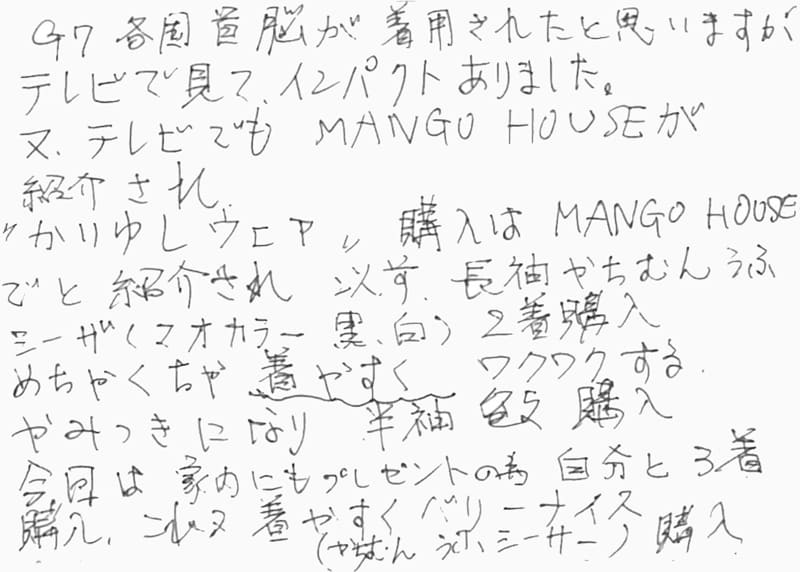 G7 各国首脳が着用されたと思いますが
テレビで見て、インパクトありました。
又、テレビでも MANGO HOUSEが
紹介され、
"かりゆしウェア" 購入は MANGO HOUSE
でと紹介され 以前、長袖やちむんうふ
シーザ(マオカラー 黒、白) 2着購入
めちゃくちゃ 着やすく ワクワクする、
やみつきになり 半袖 購入
今回は 家内にもプレゼントの為 自分と 3着
購入、これ又 着やすくベリーナイス
(やちむん うふシーサー) 購入